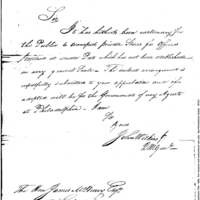 Sir
It has hitherto been customary for
the Public to transport private Stores for Officers
Stationed at remote Posts which has not been established
in any general Rule. The inclosed arrangement is
respectfully submitted to your approbation and its
adoption will be for the Government of my Agents
at Philadelphia. I am
Sir
Yours
John Wilkins Jr
QMGen
The Hon James McHenry Esqr